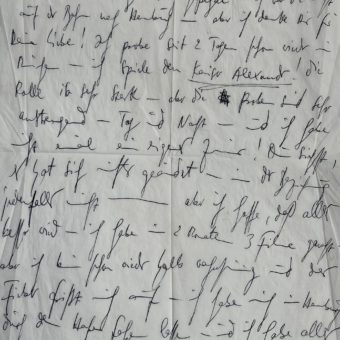 auf der Bahn nach Hamburg — aber ich danke Dir für
Deine Liebe! Ich probe seit 2 Tagen schon
— ich spiele den Kaiser Alexander! die
Rolle ist sehr stark — aber die Proben sind sehr
anstrengend — Tag und Nacht — und ich habe
nicht einmal ein eigenes Zimmer! Du siehst,
es hat sich nichts geändert — in der Beziehung
jedenfalls nicht — aber ich hoffe, daß alles
besser wird — ich habe in 2 Monaten 3 Filme gemacht
aber ich bin schon wieder halb wahnsinnig und das
Fieber frißt mich auf — ich habe mich in Hamburg
durch den Hafen fahren lassen — und ich habe alles